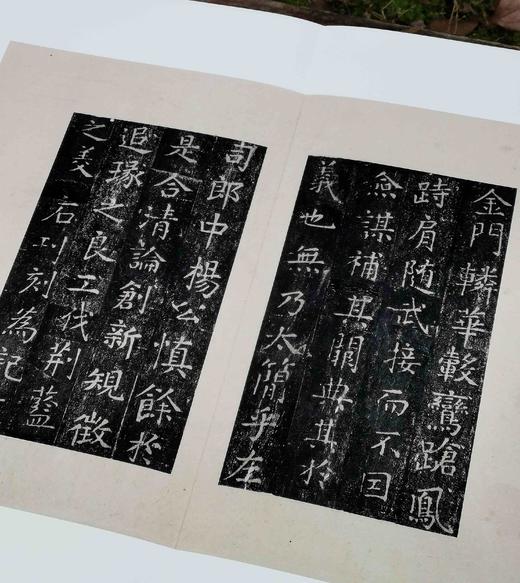 金門轔華轂鸞蹌鳳
跱肩随武接而不因
僉謀補其闕典其於
義也無乃太簡乎左
司郎中楊公慎餘於
是合清論創新規徵
追琢之良工伐荆藍
之美石刊刻為記